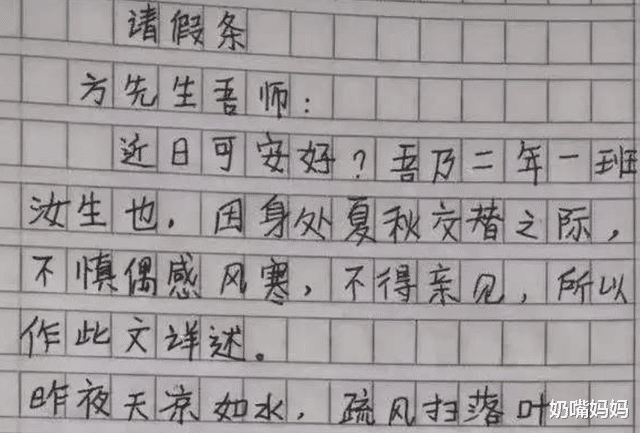 请假条
方先生吾师：
近日可安好？吾乃二年一班
汝生也．因身处夏秋交替之际，
不慎偶感风寒，不得亲见，所以
作此文详述。
昨夜天凉如水，疏风扫落叶
奶嘴妈妈